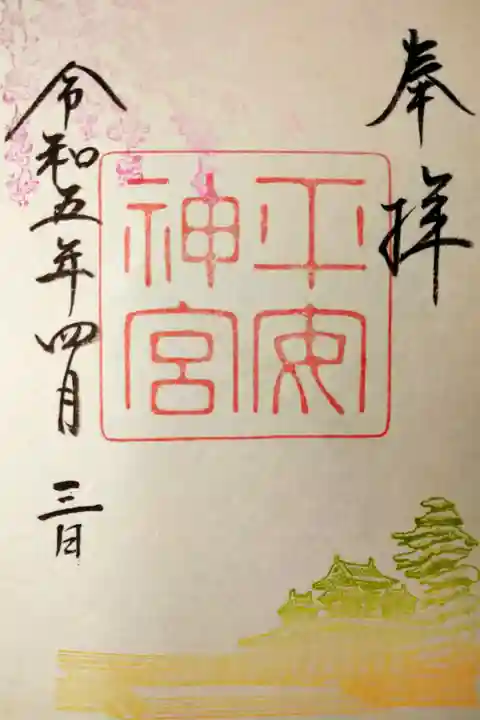 奉拝
平安
神宮
令和五年四月三日